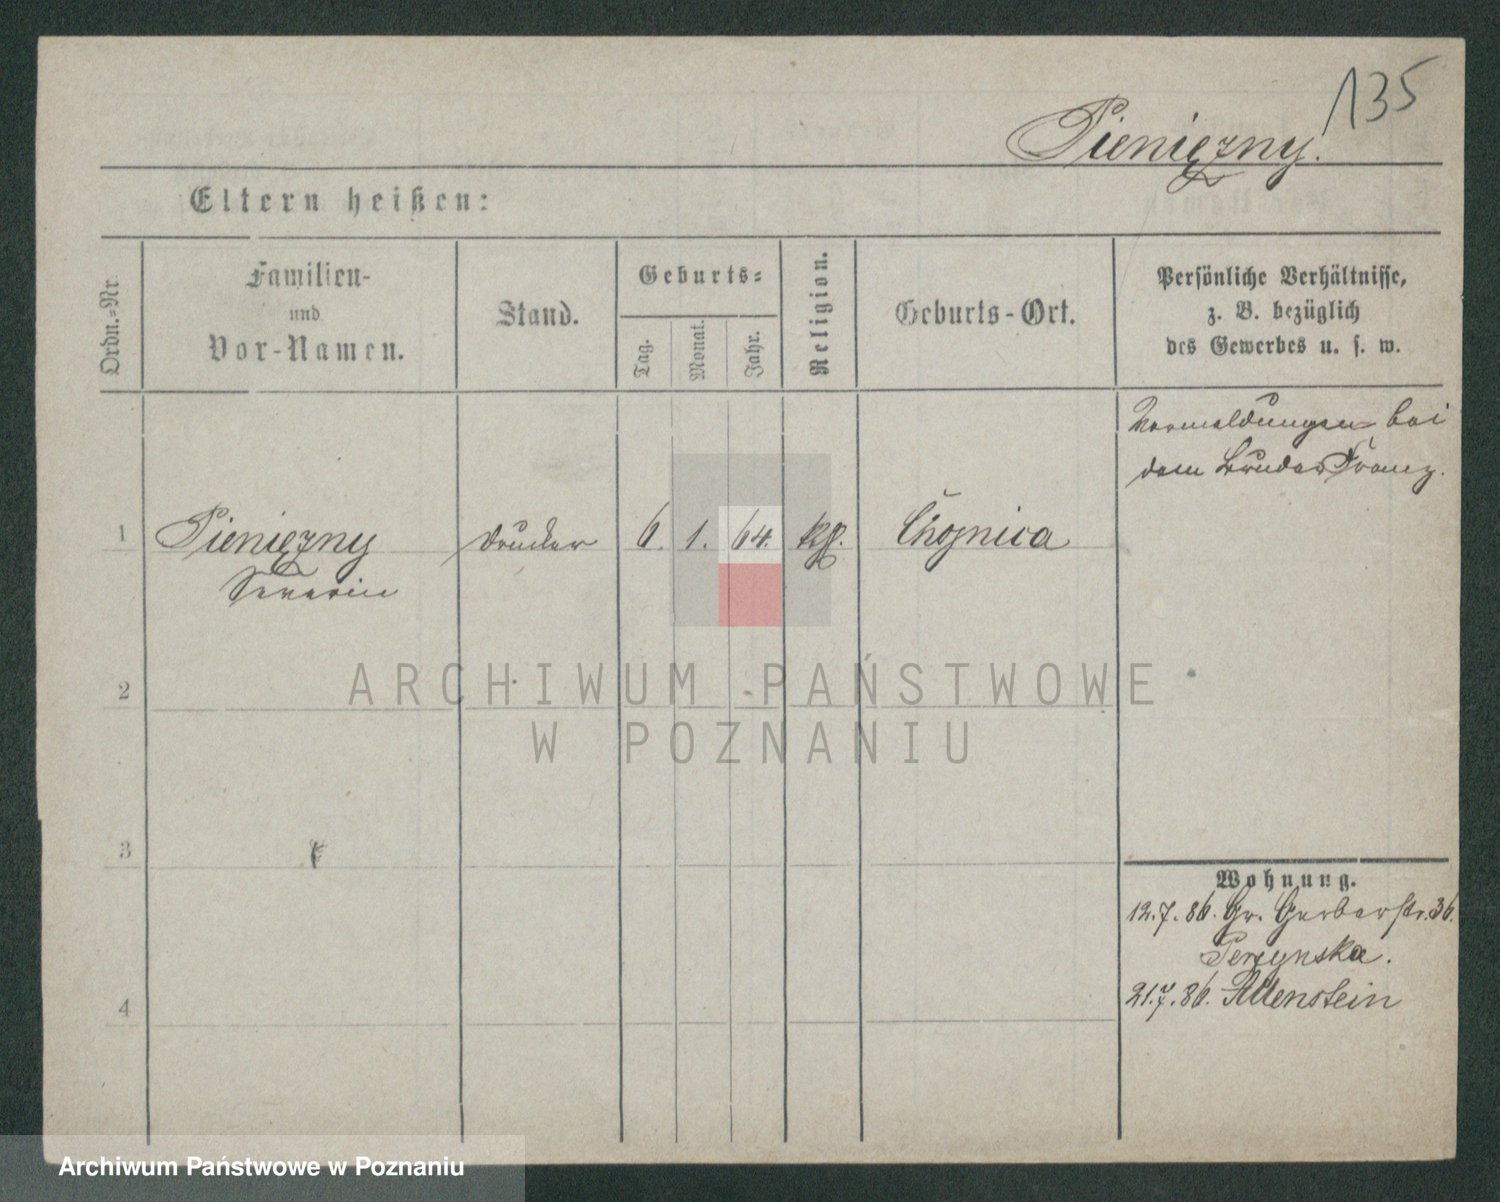 135
Pieniężny.
Eltern heißen:
Ordn.-Nr.
Familien-
und
Vor-Namen.
Stand.
Geburts-
Tag.
Monat.
Jahr.
Religion.
Geburts-Ort.
Persönliche Verhältnisse,
z. B. bezüglich
des Gewerbes u. s. w.
Vormeldungen bei
dem Bruder Franz.
1 Pieniężny Drucker 6. 1. 64. Chojnica
Severin
2
ARCHIWUM PAŃSTWOWE
W POZNANIU
3
Wohnung.
12.7.86. Gr. Gerberstr. 36.
Perzynska.
21.7.86. Allenstein
4
Archiwum Państwowe w Poznaniu